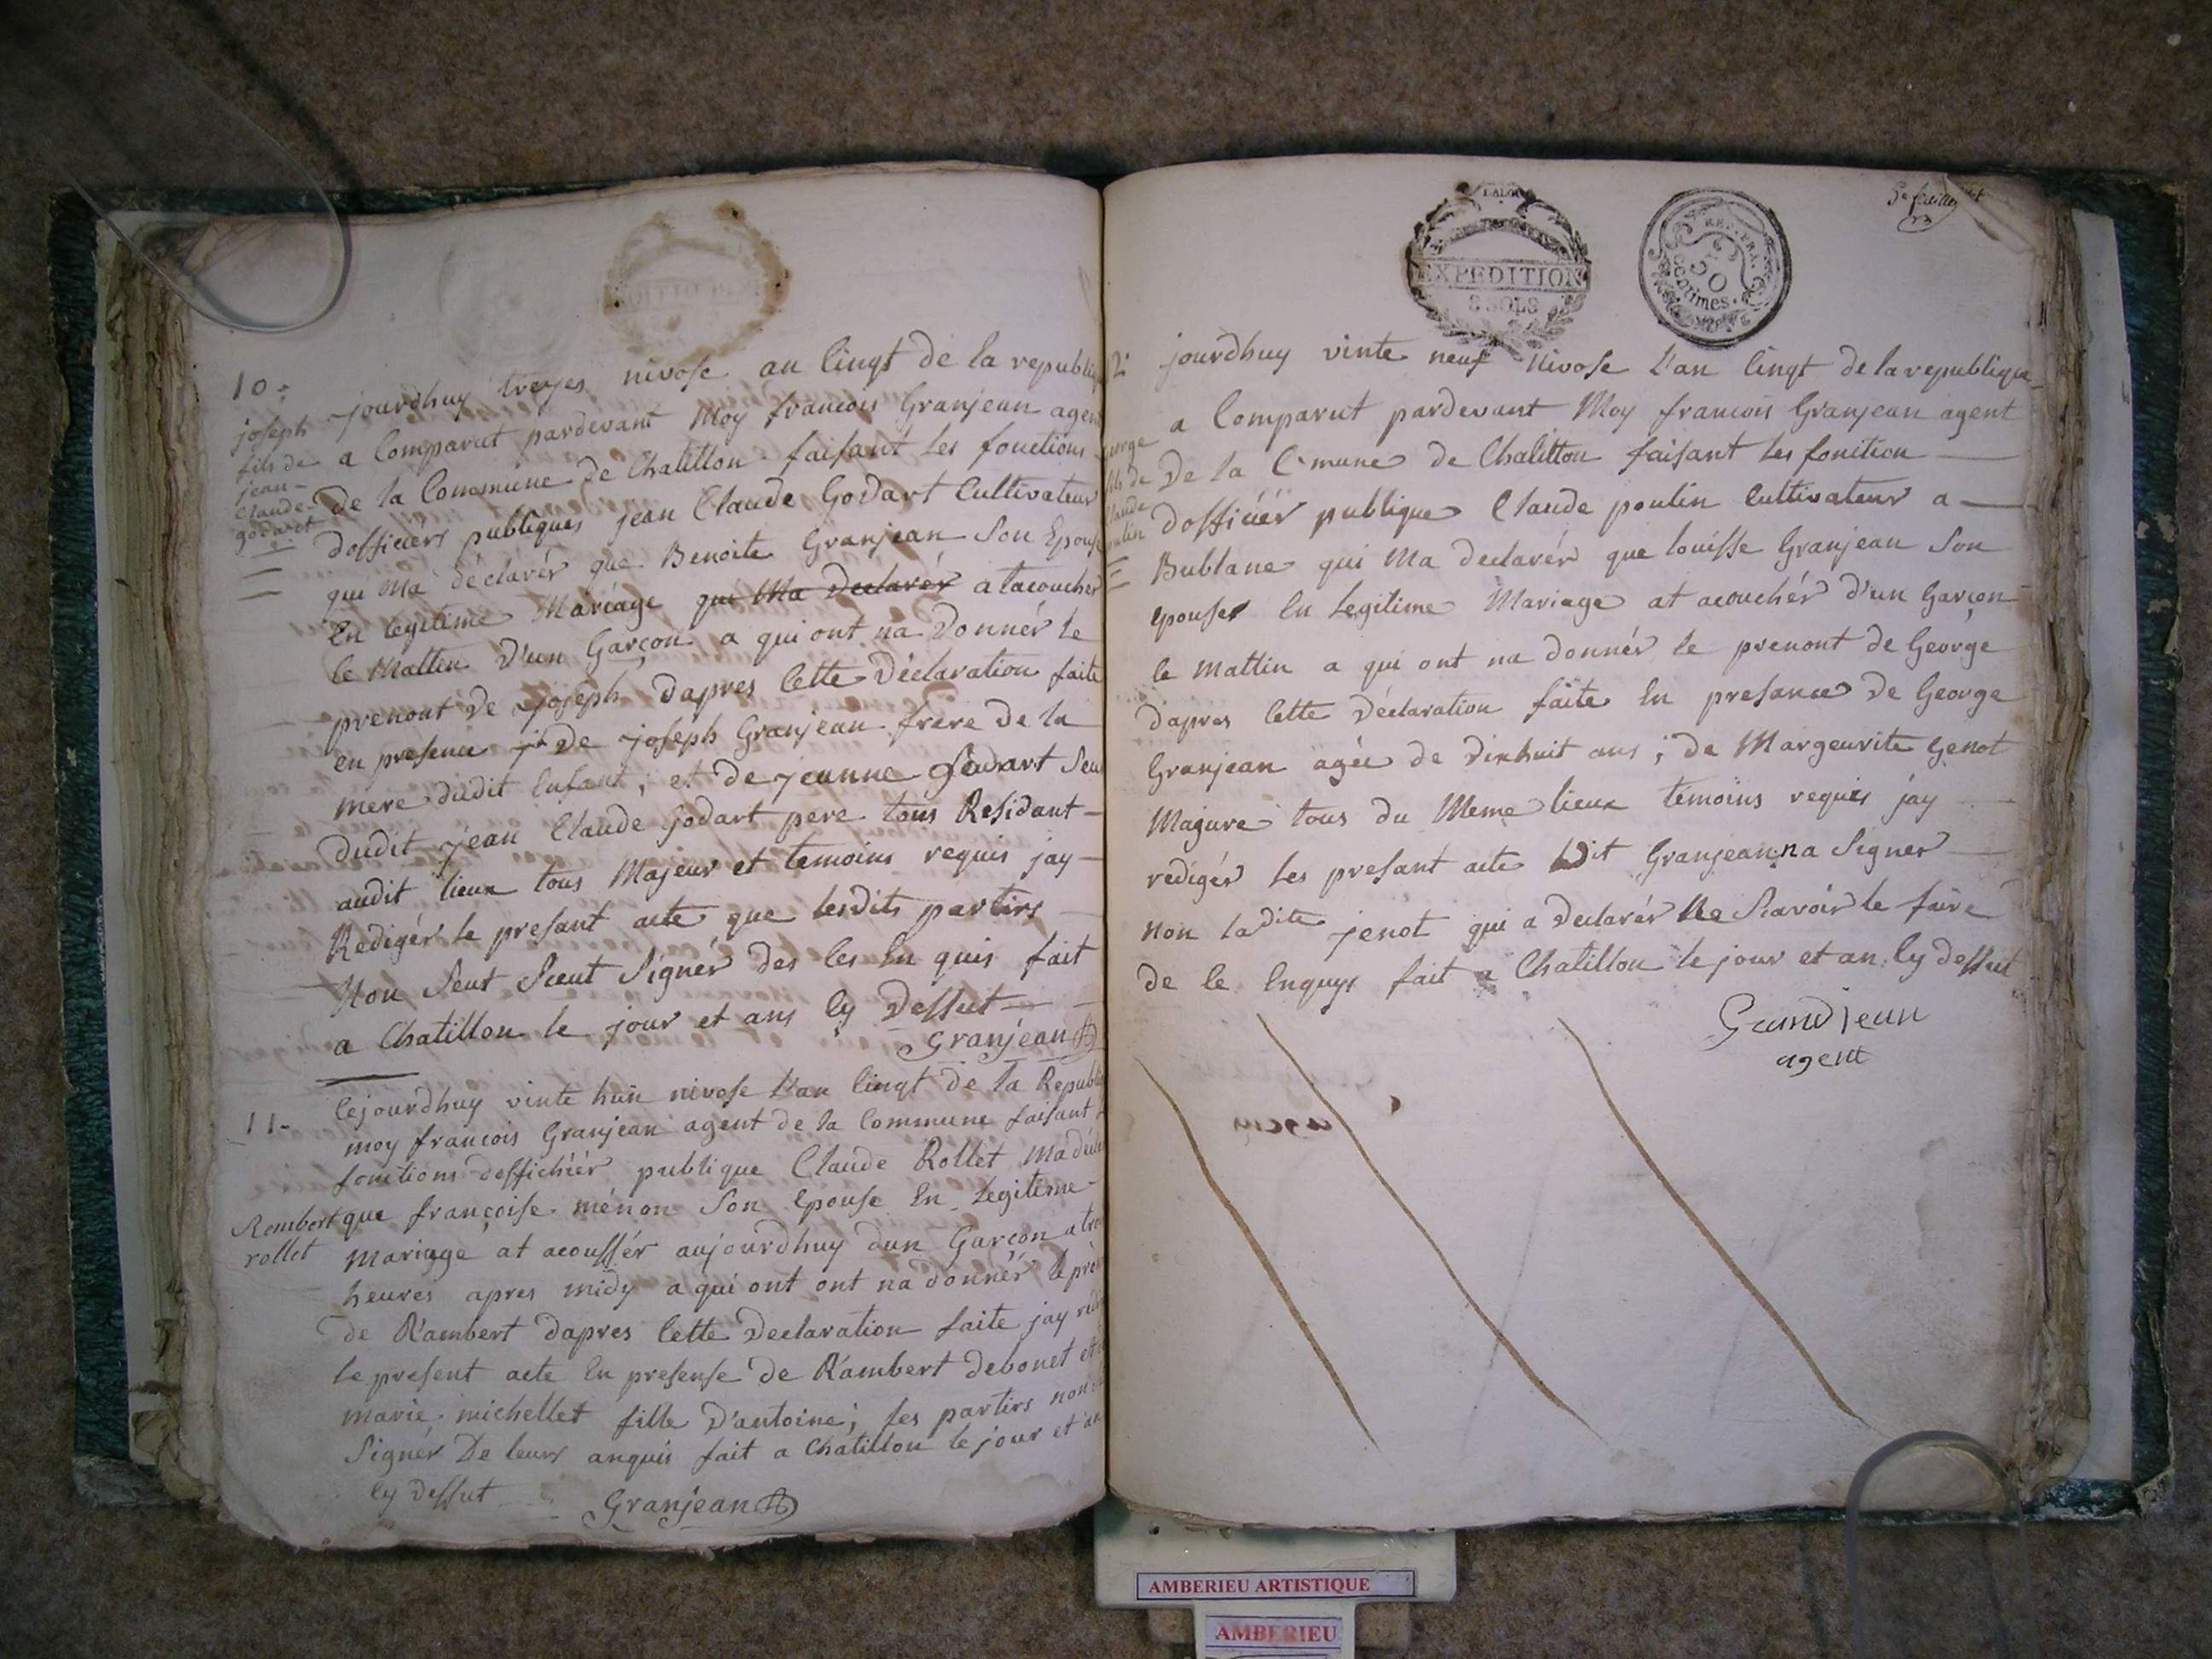 10.
joseph
fils de
jean-
Claude-
godart
jourdhuy treyes nivose au Cinqt de la republique
a Comparut pardevant Moy francois Granjean agent
De la Commune de Chatillon faisant les fonctions
dofficiers publiques jean Claude Godart Cultivateur
qui Ma déclarér que Benoite Granjean Son Epouse
En legitime Mariage qui Ma Declarér a lacoucher
le Mattin D'un Garçon a qui ont na Donnér le
prenont De joseph Dapres Cette Déclaration faite
en presence De joseph Granjean frere De la
mere dudit Enfant, et De jeanne Godart
Dudit jean Claude Godart pere tous Residant-
audit lieux tous Majeur et temoins requis jay-
Redigér le presant acte que lesdits partirs
Non Seut Sceut Signér des les En quis fait
a Chatillon le jour et ans Cy Dessut
Granjean
11-
Rembert
rollet
Cejourdhuy vinte huii nivose L'an Cinqt De la
moy francois Granjean agent de la Commune faisant
fonctions doffichiér publique Claude Rollet Ma
que françoise ménon Son Epouse En Legitime-
Mariage at acoussér aujourdhuy dun Garcon a
heures apres midy a qui ont ont na donnér le
de Rambert Dapres Cette Declaration faite jay
le present acte En presense De Rambert debonet
marie michellet fille D'antoine; les partirs non
Signér De leurs anquis fait a Chatillon le jour et an
Cy Dessut
Granjean
5e feuillet
EXPEDITION
8 SOLS
REP. FRA.
50
centimes.
2
George
fils de
Claude
poulin
jourdhuy vinte neuf Nivose L'an Cinqt de la republique
a Comparut pardevant Moy francois Granjean agent
De la C mune De Chalitton faisant les fonition
Dofficiér publique Claude poulin Cultivateur a-
Bublane qui Ma declarér que louisse Granjean Son
epouse En Legitime Mariage at acouchér D'un Garçon
le mattin a qui ont na donnér le prenont de George
dapres Cette Déclaration faite En presance De George
Granjean agée de Dixhuit ans; De Margeurite Genot
Majure tous du Meme lieux témoins requis jay
redigér les presant acte Ledit Granjean na Signer
non ladite jenot qui a Declarér Ne Scavoir le faire
De le Enquys fait a Chatillon le jour et an Cy dessut
Grandjean
agent
AMBERIEU ARTISTIQUE
AMBERIEU